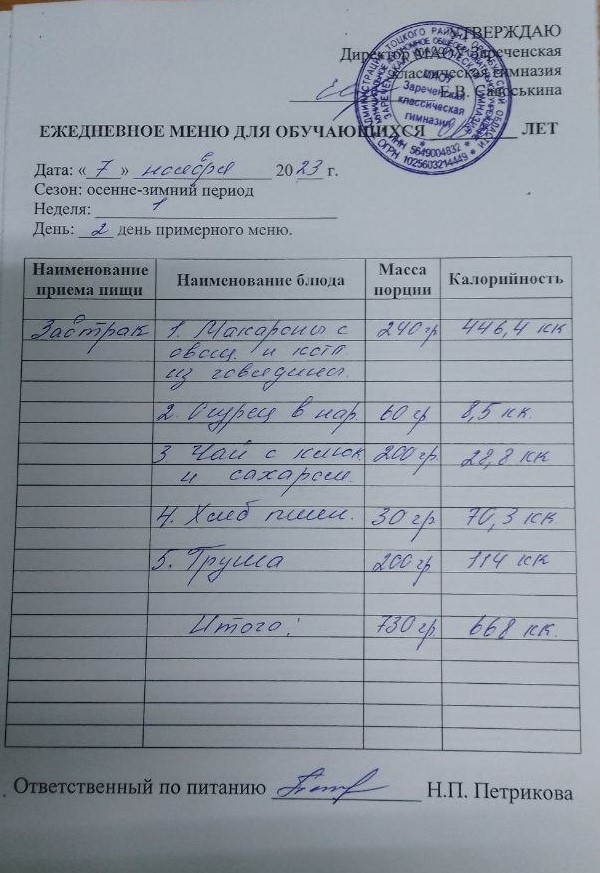 УТВЕРЖДАЮ
Директор МАОУ Зареченская
классическая гимназия
Е.В.
ЕЖЕДНЕВНОЕ МЕНЮ ДЛЯ ОБУЧАЮЩИХСЯ ЛЕТ
Дата: « 7 » ноября 2023 г.
Сезон: осенне-зимний период
Неделя: 1
День: 2 день примерного меню.
Наименование приема пищи Наименование блюда Масса порции Калорийность
Завтрак 1. Макароны с 240 гр 446,4 кк
овощ. и котл
из говядины.
2. Огурец в нар. 60 гр 8,5 кк.
3 Чай с клюк 200 гр. 28,8 кк
и сахаром.
4. Хлеб пшен. 30 гр 70,3 кк.
5. Груша 200 гр 114 кк
Итого: 730 гр 668 кк.
Ответственный по питанию Н.П. Петрикова
МАОУ
Зареченская
классическая
гимназия
ИНН 5649004832
ОГРН 1025603214449